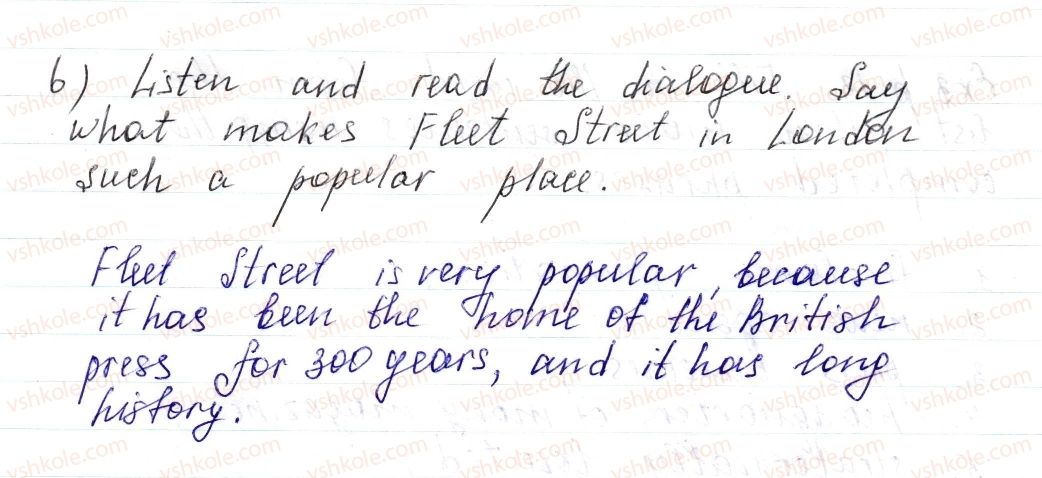 b) Listen and read the dialogue. Say
what makes Fleet Street in London
such a popular place.
Fleet Street is very popular, because
it has been the home of the British
press for 300 years, and it has long
history.